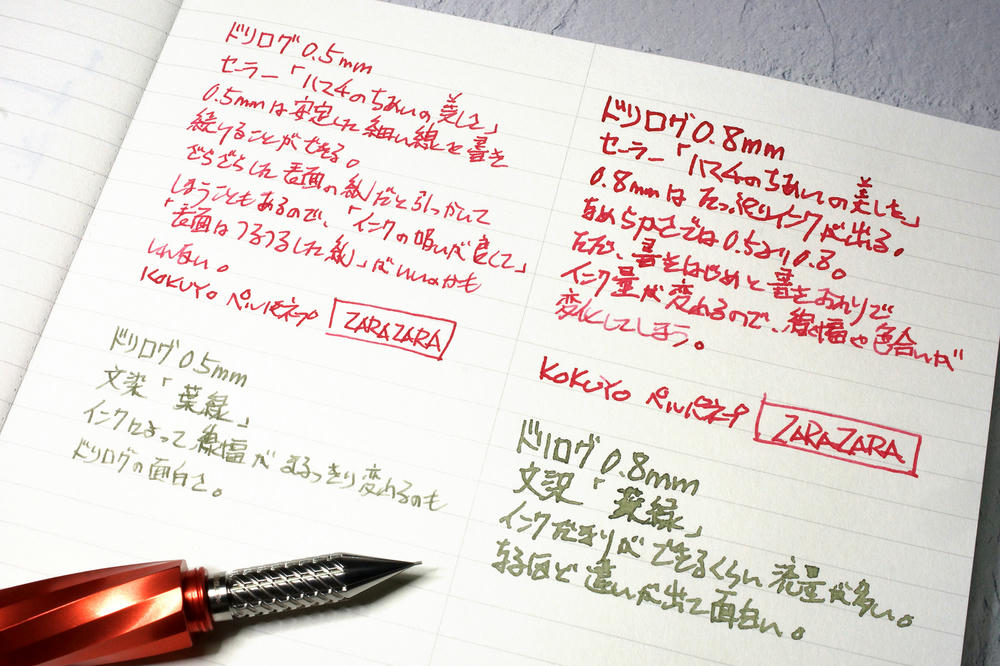 ドリログ0.5mm
セーラー「ハマチのちあいの美しさ」
0.5mmは安定した細い線を書き
続けることができる。
ざらざらした表面の紙だと引っかいて
しまうこともあるので、「インクの吸いが良くて」
「表面はつるつるした紙」がいいのかも
しれない。
KOKUYO ペルパネープ ZARAZARA
ドリログ0.5mm
文染「葉緑」
インクによって線幅がまるっきり変わるのも
ドリログの面白さ。
ドリログ0.8mm
セーラー「ハマチのちあいの美しさ」
0.8mmはたっぷりインクが出る。
なめらかさでは0.5より0.8。
ただ、書きはじめと書きおわりで
インク量が変わるので、線幅や色合いが
変化してしまう。
KOKUYO ペルパネープ ZARAZARA
ドリログ0.8mm
文染「葉緑」
インクだまりができるくらい流量が多い。
なるほど違いが出て面白い。